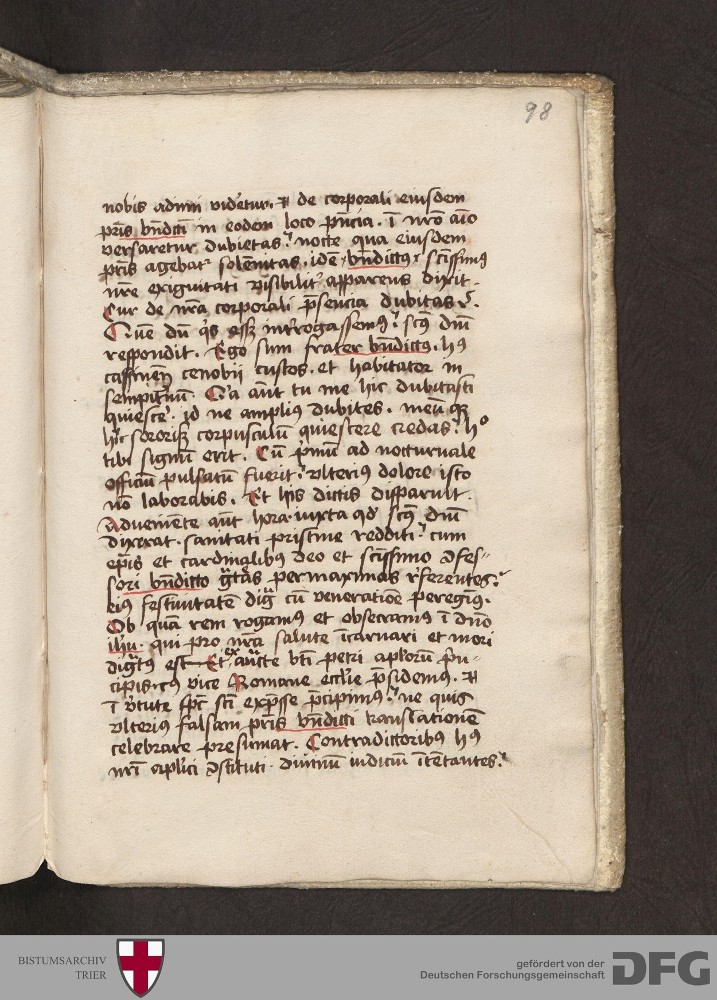 98
nobis admi videtur. et de corporali eiusdem
pris bndicti in eodem loco pncia. i nro aio
versaretur dubietas. nocte qua eiusdem
pris agebat solenitas. ide bndictus scissimus
nre exiguitati visibilit apparens dixit.
Cur de nra corporali psencia dubitas?
Que du qs esset interrogassemus. scus dni
respondit. Ego sum frater bndictus. hus
cassinen cenobii custos. et habitator in
sempiternu. Q'a aut tu me hic dubitasti
quiesce. id ne amplius dubites. meu qz
hic sororisqz corpusculu quiescere credas. ho
tibi signu erit. Cu pmu ad nocturnale
officiu pulsatu fuerit. ulterius dolore isto
no laborabis. Et his dictis disparuit.
Adveniente aut hora. iuxta qd scus dni
dixerat. sanitati pristine redditi. cum
epis et cardinalibus deo et scissimo ɔfes-
sori bndicto gras permaximas referentes.
eius festiuitate dig cu veneratioe peregimus.
Ob qua rem rogamus et obsecramus i dno
ihu. qui pro nra salute icarnari et mori
dignatus est. Et ex aucte bti petri aplorum prin-
cipis. cuius vice Romane ecclie psidemus. et
i vtute spc sci expsse pcipimus. ne quis
ulterius falsam pris bndicti translatione
celebrare presumat. Contradictoribus hus
nri aplici ɔstituti. diuinu iudiciu itetantes.
BISTUMSARCHIV
TRIER
gefördert von der
Deutschen Forschungsgemeinschaft
DFG